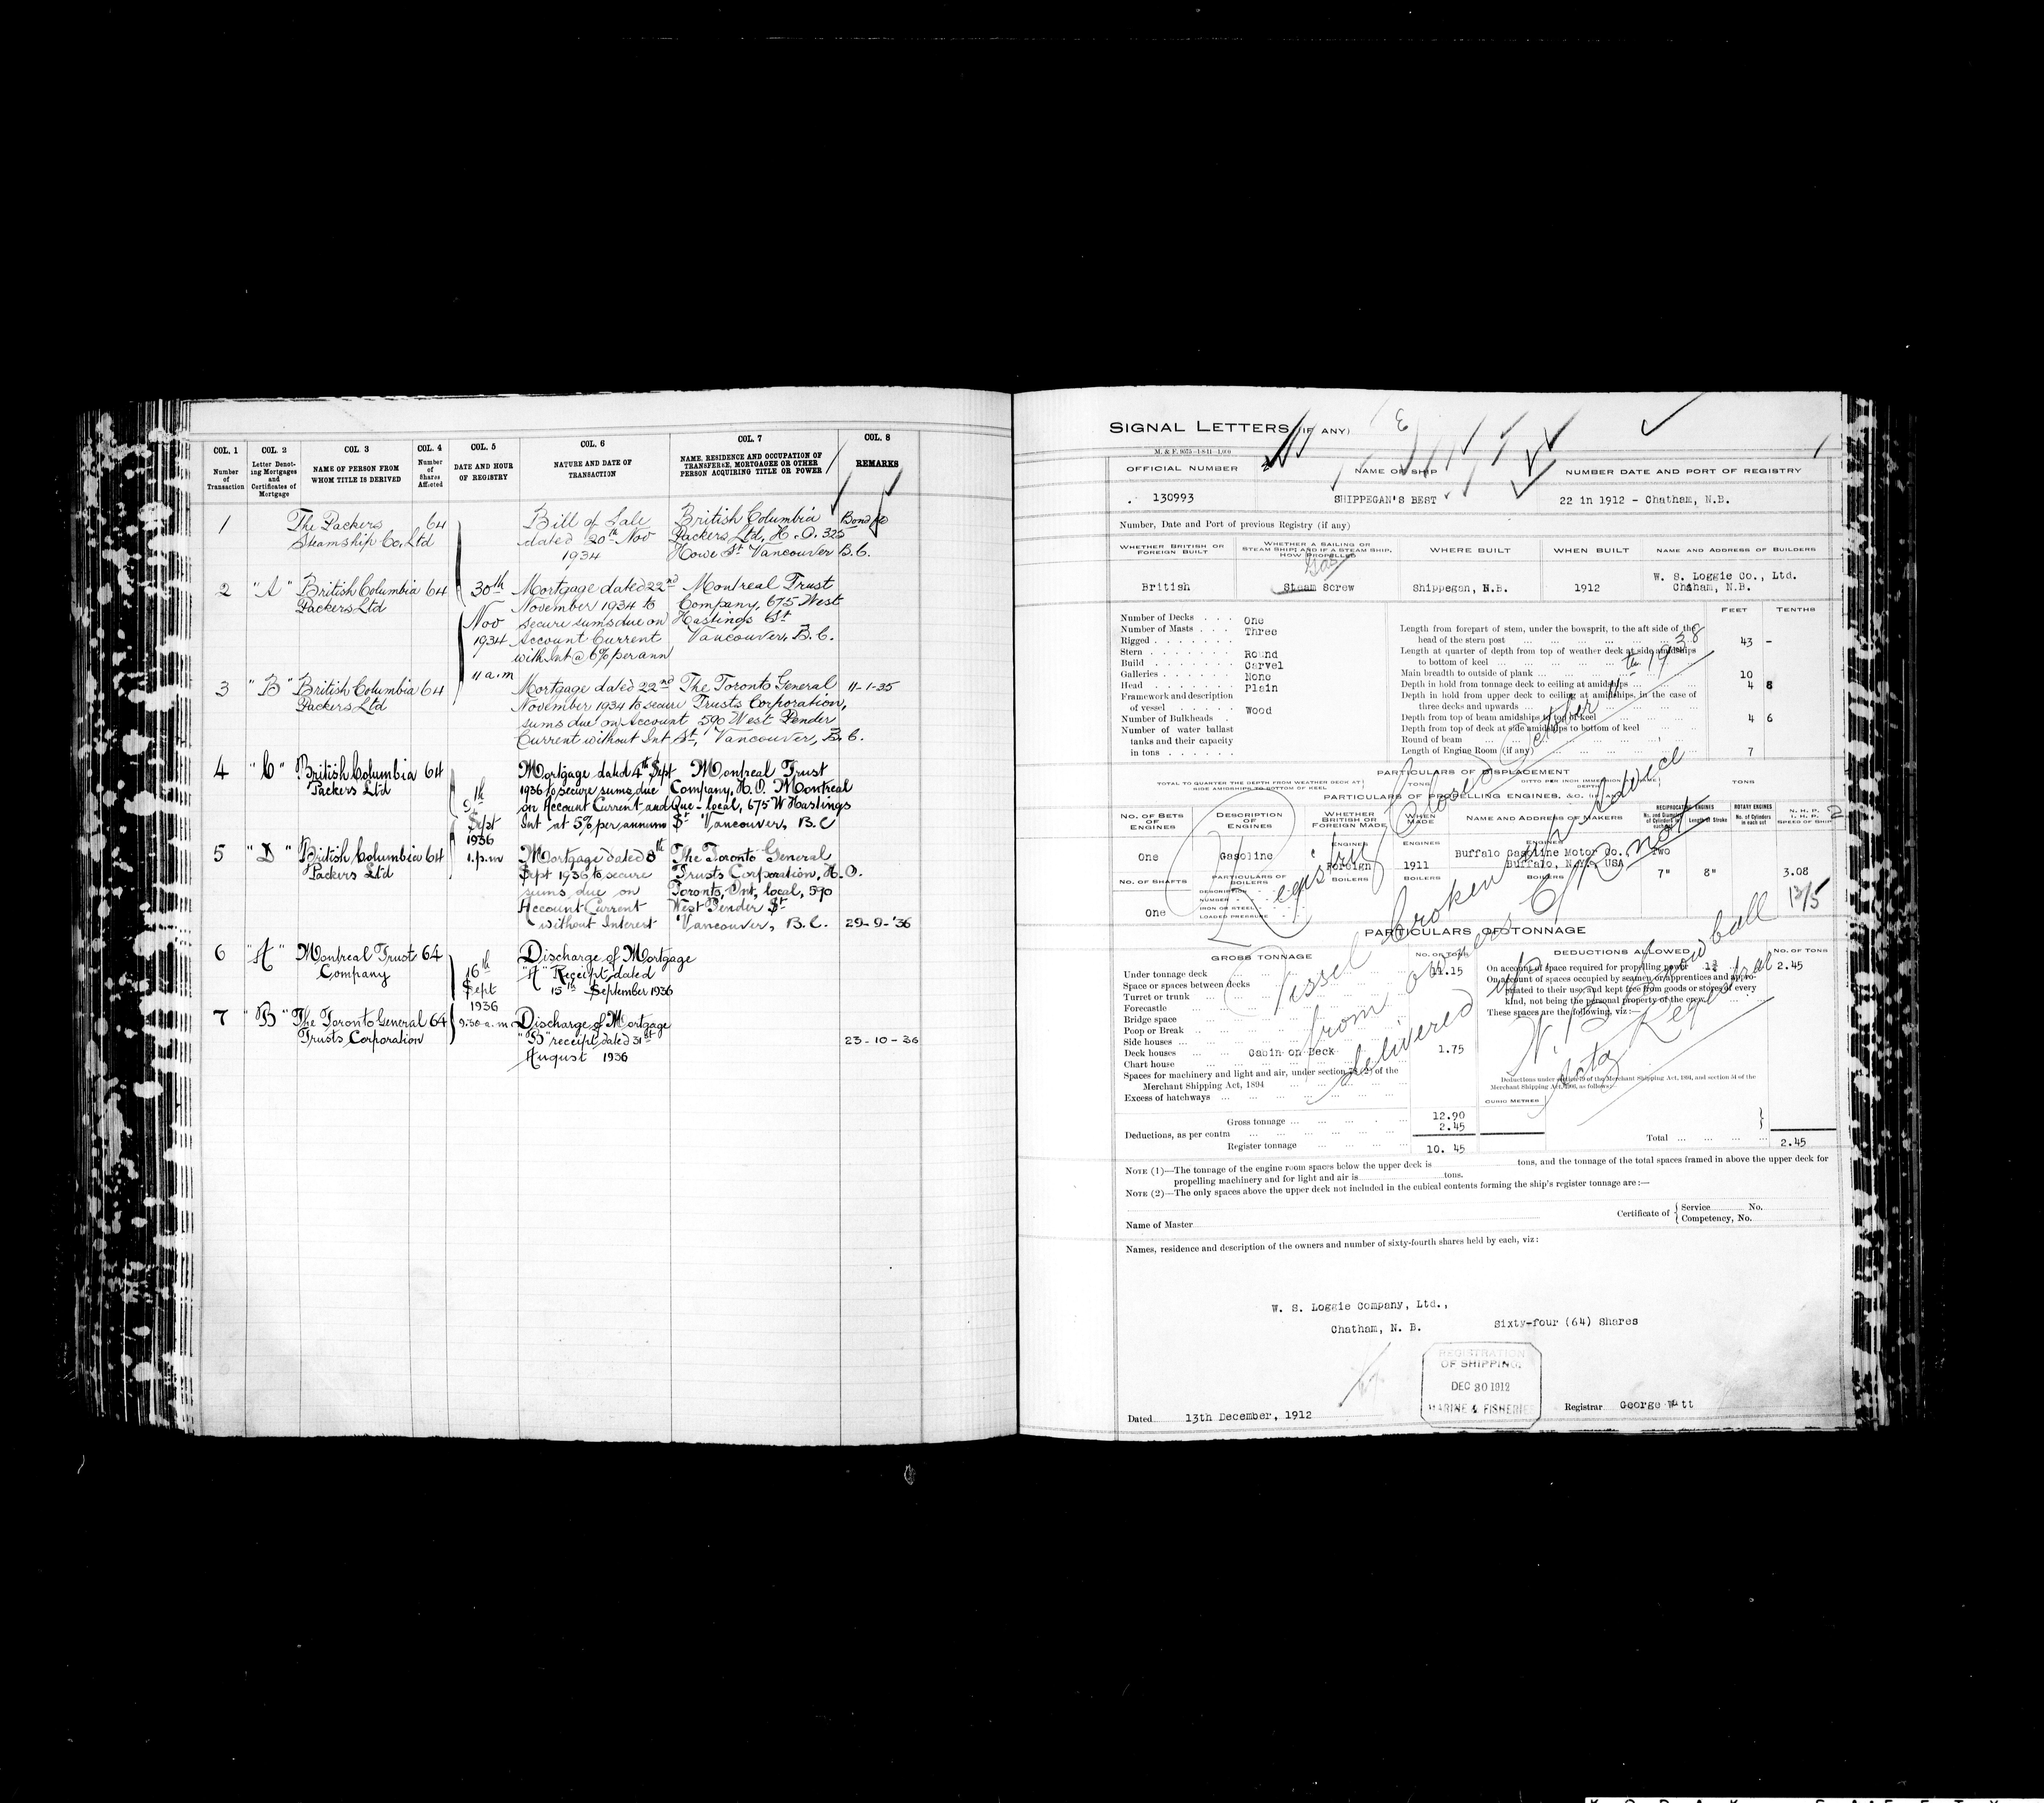 COL. 1 COL. 2 COL. 3 COL. 4 COL. 5 COL. 6 COL. 7 COL. 8
Number of Transaction
Letter Denoting Mortgages and Certificates of Mortgage
NAME OF PERSON FROM WHOM TITLE IS DERIVED
Number of Shares Affected
DATE AND HOUR OF REGISTRY
NATURE AND DATE OF TRANSACTION
NAME, RESIDENCE AND OCCUPATION OF TRANSFEREE, MORTGAGEE OR OTHER PERSON ACQUIRING TITLE OR POWER
REMARKS
1 The Packers 64 Bill of Sale British Columbia
Steamship Co, Ltd dated 20th Nov Packers Ltd, H.O. 325
1934 Howe St Vancouver B.C.
2 "A" British Columbia 64 30th Mortgage dated 22nd Montreal Trust
Packers Ltd November 1934 to Company, 675 West
Nov secure sums due on Hastings St
1934 Account Current Vancouver, B.C.
with Int @ 6% per ann
11 a.m
3 "B" British Columbia 64 Mortgage dated 22nd The Toronto General 11-1-35
Packers Ltd November 1934 to secure Trusts Corporation,
sums due on Account 590 West Pender
Current without Int St, Vancouver, B.C.
4 "C" British Columbia 64 Mortgage dated 4th Sept Montreal Trust
Packers Ltd 1936 to secure sums due Company, H.O. Montreal
9th on Account Current and Que - local, 675 W Hastings
Sept Int at 5% per annum St Vancouver, B.C
1936
5 "D" British Columbia 64 1.p.m Mortgage dated 8th The Toronto General
Packers Ltd Sept 1936 to secure Trusts Corporation, H.O.
sums due on Toronto, Ont, local, 590
Account Current West Pender St
without Interest Vancouver, B.C. 29-9-'36
6 "A" Montreal Trust 64 Discharge of Mortgage
Company 16th "A" Receipt dated
Sept 15th September 1936
1936
7 "B" The Toronto General 64 9.30 a.m Discharge of Mortgage
Trusts Corporation "B" receipt dated 31st 23-10-36
August 1936
SIGNAL LETTERS (IF ANY)
M. & F.
OFFICIAL NUMBER NAME OF SHIP NUMBER DATE AND PORT OF REGISTRY
130993 SHIPPEGAN'S BEST 22 in 1912 - Chatham, N.B.
Number, Date and Port of previous Registry (if any)
WHETHER BRITISH OR FOREIGN BUILT
WHETHER A SAILING OR STEAM SHIP; AND IF A STEAM SHIP, HOW PROPELLED
WHERE BUILT WHEN BUILT NAME AND ADDRESS OF BUILDERS
Gas
British Steam Screw Shippegan, N.B. 1912 W. S. Loggie Co., Ltd.
Chaham, N.B.
FEET TENTHS
Number of Decks One
Number of Masts Three
Rigged
Stern Round
Build Carvel
Galleries None
Head Plain
Framework and description
of vessel Wood
Number of Bulkheads
Number of water ballast
tanks and their capacity
in tons
Length from forepart of stem, under the bowsprit, to the aft side of the
head of the stern post 43 -
Length at quarter of depth from top of weather deck at side amidships
to bottom of keel
Main breadth to outside of plank 10
Depth in hold from tonnage deck to ceiling at amidships 4 8
Depth in hold from upper deck to ceiling at amidships, in the case of
three decks and upwards
Depth from top of beam amidships to top of keel 4 6
Depth from top of deck at side amidships to bottom of keel
Round of beam
Length of Engine Room (if any) 7
PARTICULARS OF DISPLACEMENT
TOTAL TO QUARTER THE DEPTH FROM WEATHER DECK AT SIDE AMIDSHIPS TO BOTTOM OF KEEL TONS
PARTICULARS OF PROPELLING ENGINES, &C. (IF ANY)
NO. OF SETS OF ENGINES DESCRIPTION OF ENGINES WHETHER BRITISH OR FOREIGN MADE WHEN MADE NAME AND ADDRESS OF MAKERS
RECIPROCATING ENGINES ROTARY ENGINES N. H. P. I. H. P. SPEED OF SHIP
ENGINES ENGINES ENGINES
One Gasoline Foreign 1911 Buffalo Gasoline Motor Co., Two
Buffalo, N.Y. USA
NO. OF SHAFTS PARTICULARS OF BOILERS BOILERS BOILERS BOILERS 7" 8" 3.08
DESCRIPTION
NUMBER
IRON OR STEEL
LOADED PRESSURE
One
PARTICULARS OF TONNAGE
GROSS TONNAGE NO. OF TONS DEDUCTIONS ALLOWED NO. OF TONS
Under tonnage deck 11.15
Space or spaces between decks
Turret or trunk
Forecastle
Bridge space
Poop or Break
Side houses
Deck houses Cabin on Deck 1.75
Chart house
Spaces for machinery and light and air, under section 78 (2) of the
Merchant Shipping Act, 1894
Excess of hatchways
On account of space required for propelling power 2.45
On account of spaces occupied by seamen or apprentices and appro-
priated to their use, and kept free from goods or stores of every
kind, not being the personal property of the crew
These spaces are the following, viz:—
Deductions under section 79 of the Merchant Shipping Act, 1894, and section 54 of the
Merchant Shipping Act, 1906, as follows:
CUBIC METRES
Gross tonnage 12.90
Deductions, as per contra 2.45
Register tonnage 10. 45
Total 2.45
Registry Closed October 11th 1938
Vessel broken up Advice
from owners C/R not
delivered up
N B Snowball
Actg Registrar
NOTE (1)—The tonnage of the engine room spaces below the upper deck is tons, and the tonnage of the total spaces framed in above the upper deck for
propelling machinery and for light and air is tons.
NOTE (2)—The only spaces above the upper deck not included in the cubical contents forming the ship's register tonnage are:—
Name of Master Certificate of Service No.
Competency, No.
Names, residence and description of the owners and number of sixty-fourth shares held by each, viz:
W. S. Loggie Company, Ltd.,
Chatham, N. B. Sixty-four (64) Shares
REGISTRATION
OF SHIPPING,
DEC 30 1912
MARINE & FISHERIE
Dated 13th December, 1912 Registrar George Watt